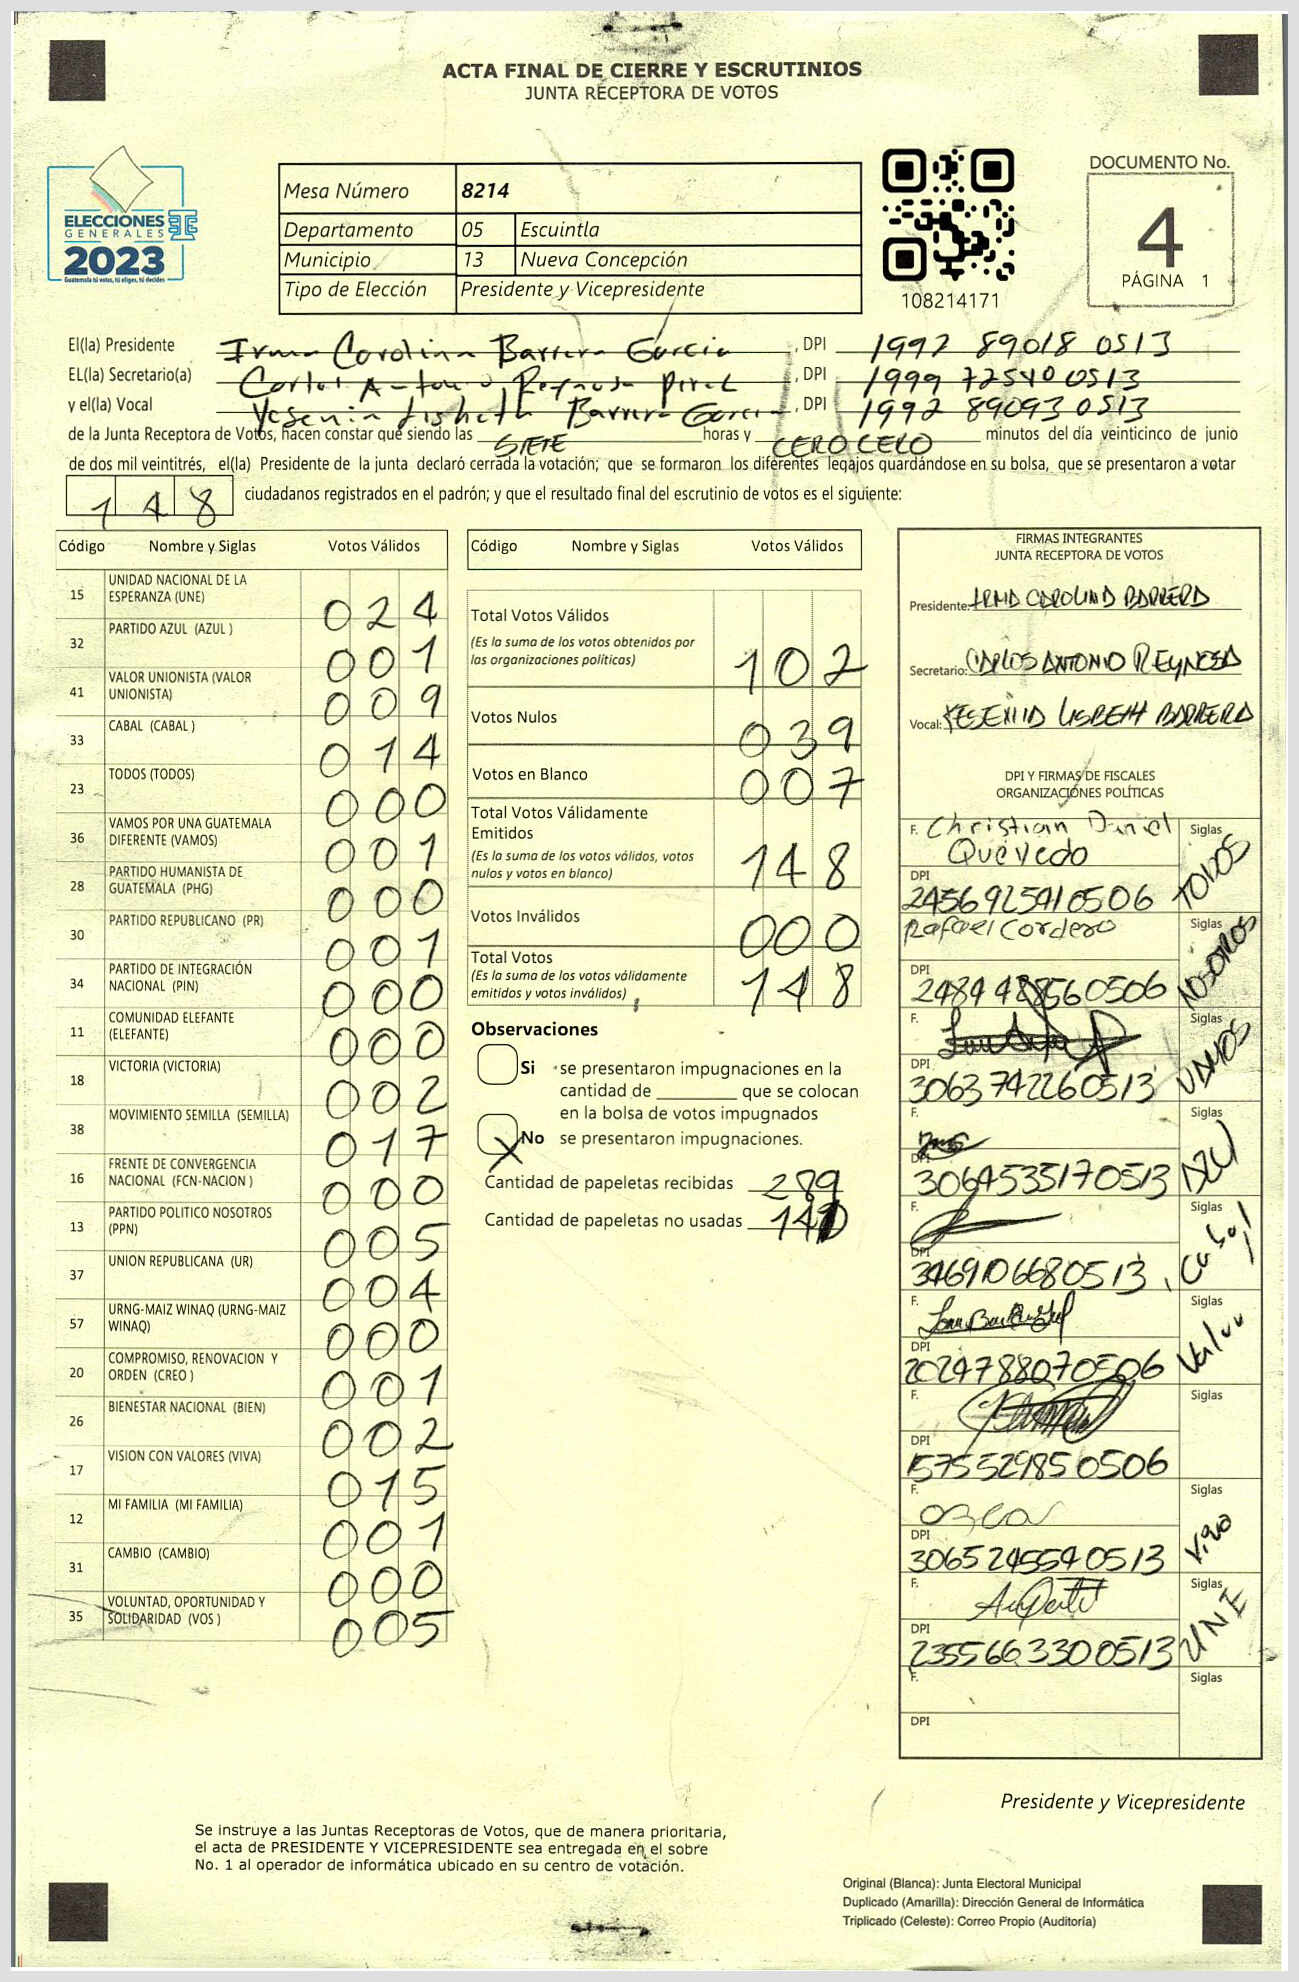 ACTA FINAL DE CIERRE Y ESCRUTINIOS
JUNTA RECEPTORA DE VOTOS
ELECCIONES
GENERALES
2023
Guatemala tú votas, tú eliges, tú decides
Mesa Número 8214
Departamento 05 Escuintla
Municipio 13 Nueva Concepción
Tipo de Elección Presidente y Vicepresidente
108214171
DOCUMENTO No.
4
PÁGINA 1
El(la) Presidente Irma Carolina Barrera Garcia, DPI 1992 89018 0513
EL(la) Secretario(a) Carlos Antonio Reynosa, DPI 1999 72540 0513
y el(la) Vocal Yesenia Lisbeth Barrera Garcia, DPI 1992 89093 0513
de la Junta Receptora de Votos, hacen constar que siendo las SIETE horas y CERO CERO minutos del día veinticinco de junio
de dos mil veintitrés, el(la) Presidente de la junta declaró cerrada la votación; que se formaron los diferentes legajos guardándose en su bolsa, que se presentaron a votar
148 ciudadanos registrados en el padrón; y que el resultado final del escrutinio de votos es el siguiente:
Código Nombre y Siglas Votos Válidos
15 UNIDAD NACIONAL DE LA ESPERANZA (UNE) 024
32 PARTIDO AZUL (AZUL ) 001
41 VALOR UNIONISTA (VALOR UNIONISTA) 009
33 CABAL (CABAL ) 014
23 TODOS (TODOS) 000
36 VAMOS POR UNA GUATEMALA DIFERENTE (VAMOS) 001
28 PARTIDO HUMANISTA DE GUATEMALA (PHG) 000
30 PARTIDO REPUBLICANO (PR) 001
34 PARTIDO DE INTEGRACIÓN NACIONAL (PIN) 000
11 COMUNIDAD ELEFANTE (ELEFANTE) 000
18 VICTORIA (VICTORIA) 002
38 MOVIMIENTO SEMILLA (SEMILLA) 017
16 FRENTE DE CONVERGENCIA NACIONAL (FCN-NACION ) 000
13 PARTIDO POLITICO NOSOTROS (PPN) 005
37 UNION REPUBLICANA (UR) 004
57 URNG-MAIZ WINAQ (URNG-MAIZ WINAQ) 000
20 COMPROMISO, RENOVACION Y ORDEN (CREO ) 001
26 BIENESTAR NACIONAL (BIEN) 002
17 VISION CON VALORES (VIVA) 015
12 MI FAMILIA (MI FAMILIA) 001
31 CAMBIO (CAMBIO) 000
35 VOLUNTAD, OPORTUNIDAD Y SOLIDARIDAD (VOS ) 005
Código Nombre y Siglas Votos Válidos
Total Votos Válidos 102
(Es la suma de los votos obtenidos por
las organizaciones políticas)
Votos Nulos 039
Votos en Blanco 007
Total Votos Válidamente
Emitidos 148
(Es la suma de los votos válidos, votos
nulos y votos en blanco)
Votos Inválidos 000
Total Votos 148
(Es la suma de los votos válidamente
emitidos y votos inválidos)
Observaciones
Si se presentaron impugnaciones en la
cantidad de ________ que se colocan
en la bolsa de votos impugnados
X No se presentaron impugnaciones.
Cantidad de papeletas recibidas 289
Cantidad de papeletas no usadas
FIRMAS INTEGRANTES
JUNTA RECEPTORA DE VOTOS
Presidente: IRMA CAROLINA BARRERA
Secretario: CARLOS ANTONIO REYNOSA
Vocal: YESENIA LISBETH BARRERA
DPI Y FIRMAS DE FISCALES
ORGANIZACIONES POLÍTICAS
F. Christian Daniel Quevedo Siglas TODOS
DPI 2456925910506
Rafael Cordero Siglas NOSOTROS
DPI
F. Siglas VAMOS
DPI 3063742260513
F. Siglas AZUL
DPI 3064535170513
F. Siglas Cabal
DPI 3469106680513
F. Siglas Valor
DPI 2024788070506
F. Siglas
DPI 1575529850506
F. Oscar Siglas Viva
DPI 3065245540513
F. Siglas UNE
DPI 2355663300513
F. Siglas
DPI
Presidente y Vicepresidente
Se instruye a las Juntas Receptoras de Votos, que de manera prioritaria,
el acta de PRESIDENTE Y VICEPRESIDENTE sea entregada en el sobre
No. 1 al operador de informática ubicado en su centro de votación.
Original (Blanca): Junta Electoral Municipal
Duplicado (Amarilla): Dirección General de Informática
Triplicado (Celeste): Correo Propio (Auditoría)